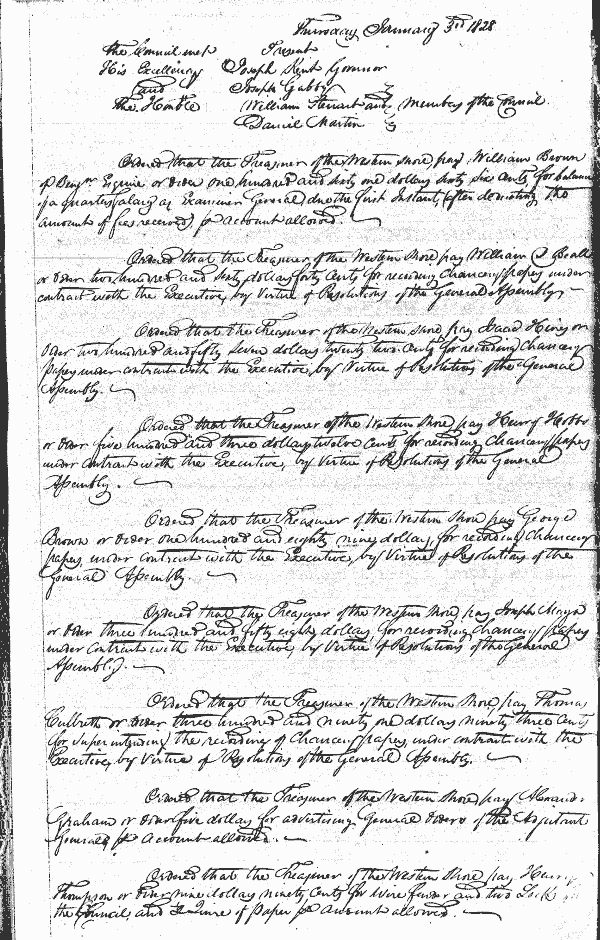 Thursday January 3rd 1828
The Council met Present
His Excellency Joseph Kent Governor
and Joseph Gabby
The Honble William Stewart and Members of the Council.
Daniel Martin
Ordered that the Treasurer of the Western Shore pay William Brown
of Benjn Esquire or order one hundred and sixty one dollars sixty six Cents, for balance
of a quarters salary as Examiner General due the first Instant, (after deducting the
amount of fees received) pr Account allowed.
Ordered that the Treasurer of the Western Shore pay William S Beall
or order two hundred and sixty dollars forty Cents for recording Chancery papers under
contract with the Executive, by Virtue of Resolutions of the General Assembly
Ordered that the Treasurer of the Western Shore pay Isaac or
Order two hundred and fifty seven dollars twenty two Cents for recording Chancery
papers under contract with the Executive, by Virtue of Resolutions of the General
Assembly.
Ordered that the Treasurer of the Western Shore pay Henry Hobbs
or order five hundred and three dollars twelve Cents for recording Chancery papers
under contract with the Executive, by Virtue of Resolutions of the General
Assembly.
Ordered that the Treasurer of the Western Shore pay George
Brown or order one hundred and eighty nine dollars, for recording Chancery
papers under Contract with the Executive, by Virtue of Resolutions of the
General Assembly.
Ordered that the Treasurer of the Western Shore pay Joseph Mayo
or order three hundred and fifty eight dollars, for recording Chancery papers
under Contract with the Executive, by Virtue of Resolutions of the General
Assembly.
Ordered that the Treasurer of the Western Shore pay Thomas
Culbreth or order three hundred and ninety one dollars ninety three Cents
for superintending the recording of Chancery papers, under contract with the
Executive, by Virtue of Resolutions of the General Assembly.
Ordered that the Treasurer of the Western Shore pay
Graham or order five dollars for advertising General orders of the Adjutant
General, pr Account allowed.
Ordered that the Treasurer of the Western Shore pay Henry
Thompson or order nine dollars ninety Cents for Wire fender and two Lock
the Council, and Quire of Paper pr Account allowed.